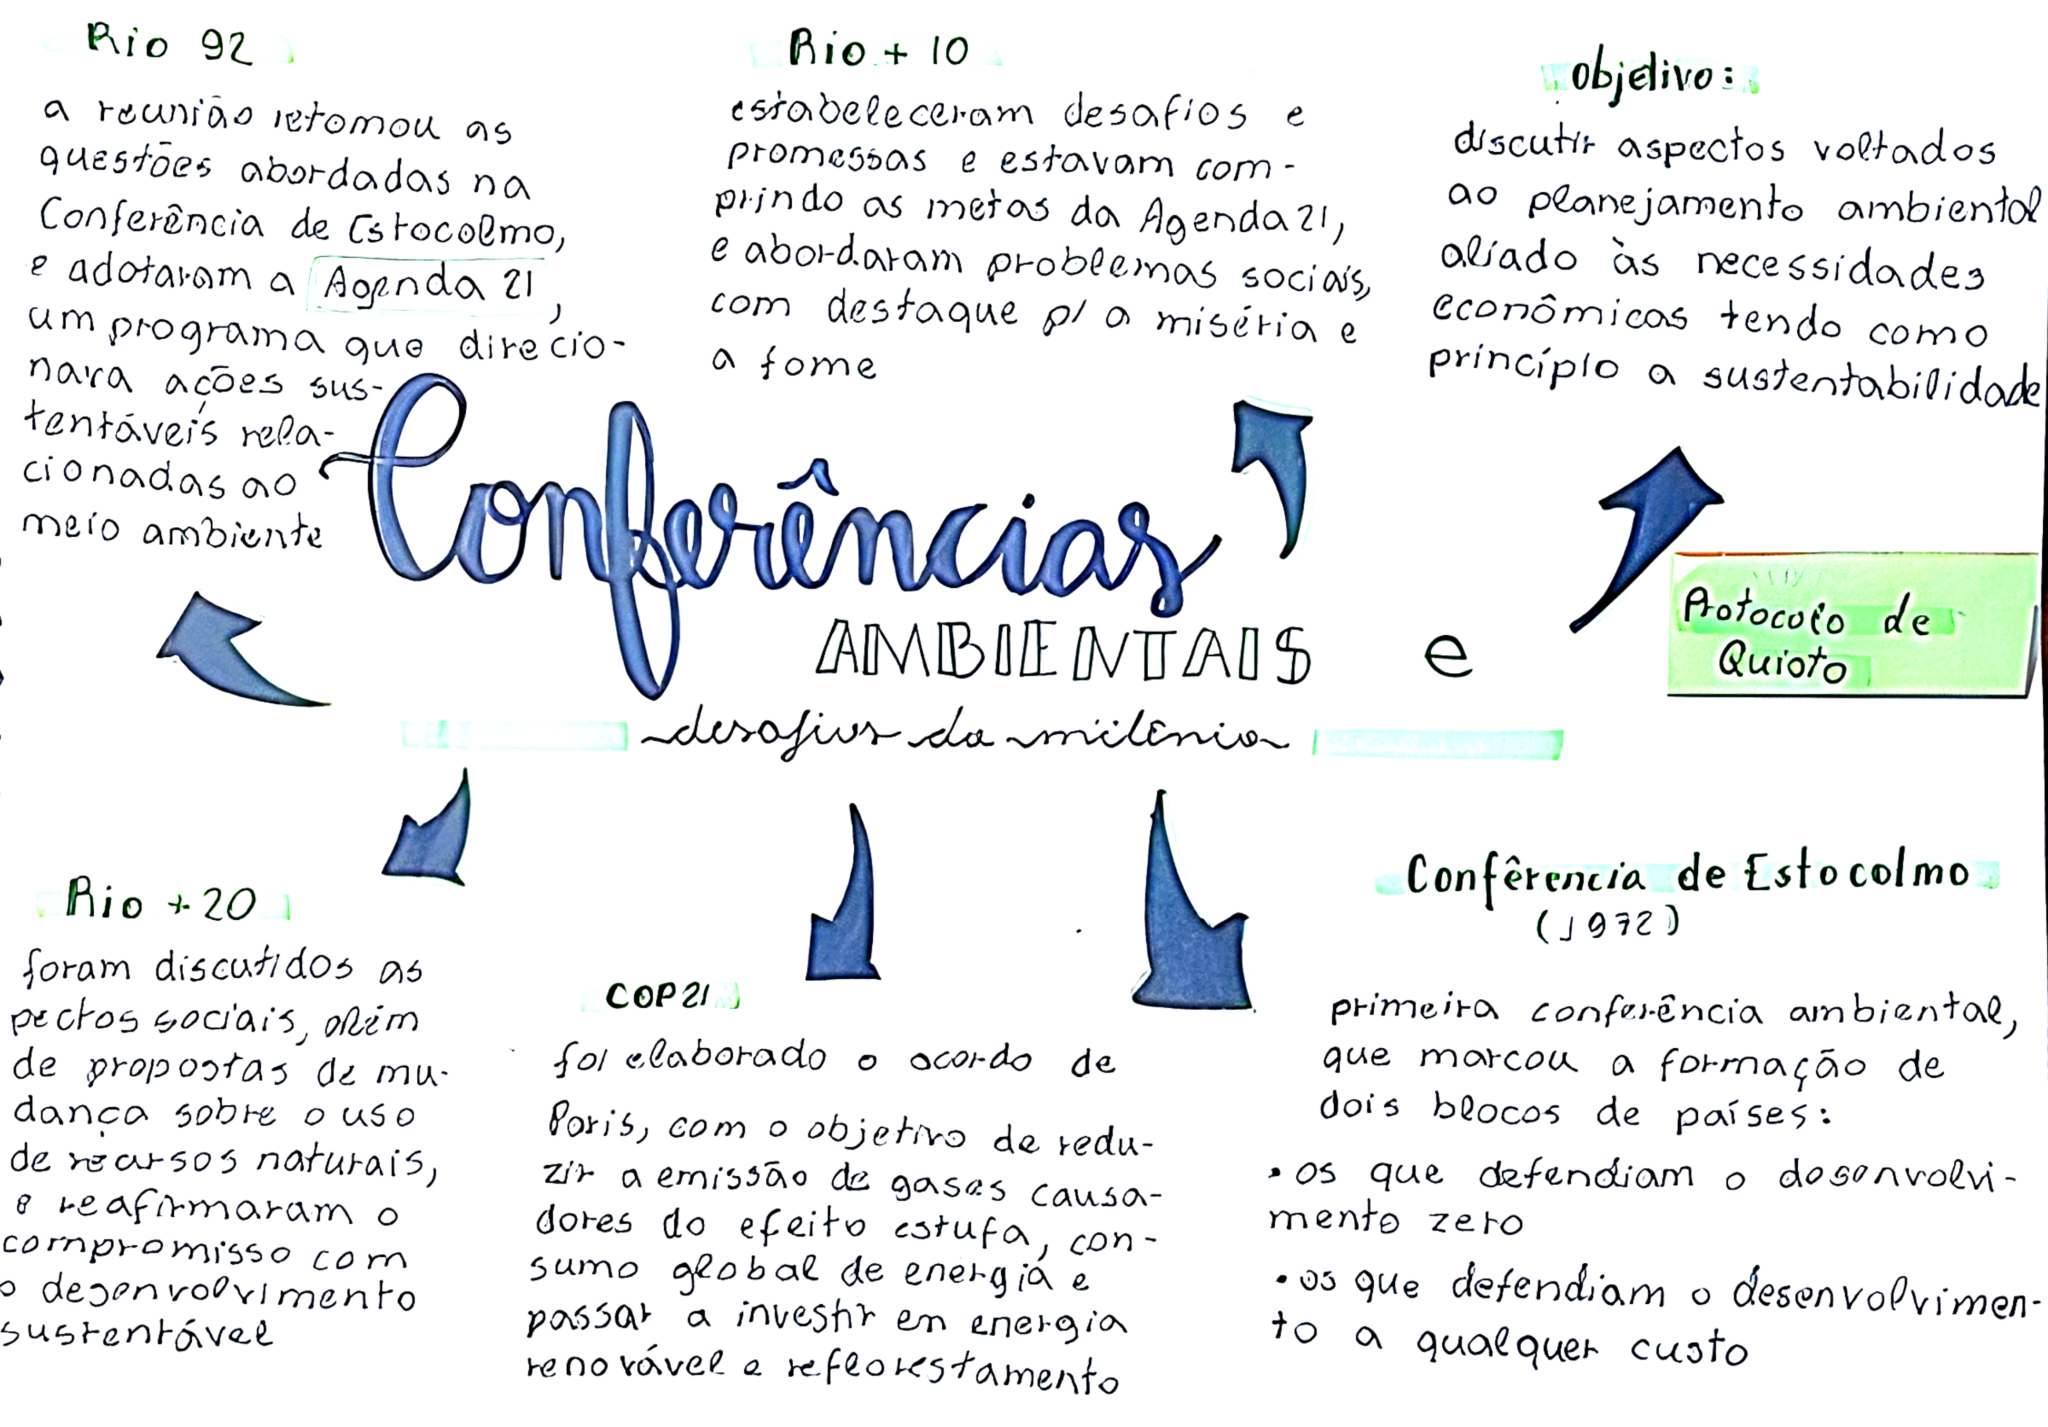 Rio 92
a reunião retomou as
questões abordadas na
Conferência de Estocolmo,
e adotaram a Agenda 21,
um programa que direcio-
nara ações sus-
tentáveis rela-
cionadas ao
meio ambiente
Rio + 10
estabeleceram desafios e
promessas e estavam com-
prindo as metas da Agenda 21,
e abordaram problemas sociais,
com destaque p/ a miséria e
a fome
objetivo:
discutir aspectos voltados
ao planejamento ambiental
aliado às necessidades
econômicas tendo como
princípio a sustentabilidade
Conferências
AMBIENTAIS e
Protocolo de
Quioto
desafios do milênio
Rio + 20
foram discutidos as
pectos sociais, além
de propostas de mu-
dança sobre o uso
de recursos naturais,
e reafirmaram o
compromisso com
o desenvolvimento
sustentável
COP21
foi elaborado o acordo de
Paris, com o objetivo de redu-
zir a emissão de gases causa-
dores do efeito estufa, con-
sumo global de energia e
passar a investir en energia
renovável e reflorestamento
Confêrencia de Estocolmo
(1972)
primeira conferência ambiental,
que marcou a formação de
dois blocos de países:
• os que defendiam o desenvolvi-
mento zero
• os que defendiam o desenvolvimen-
to a qualquer custo